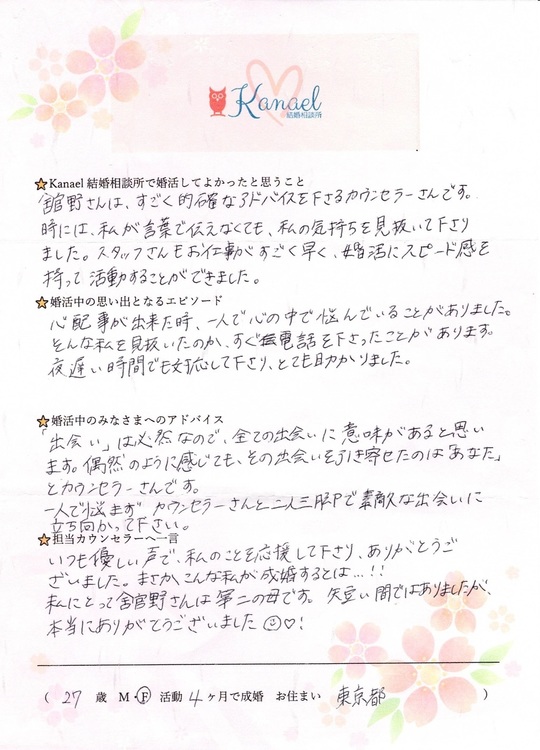 Kanael
結婚相談所
★Kanael 結婚相談所で婚活してよかったと思うこと
舘野さんは、すごく的確なアドバイスを下さるカウンセラーさんです。
時には、私が言葉で伝えなくても、私の気持ちを見抜いて下さり
ました。スタッフさんもお仕事がすごく早く、婚活にスピード感を
持って活動することができました。
★婚活中の思い出となるエピソード
心配事が出来た時、一人で心の中で悩んでいることがありました。
そんな私を見抜いたのか、すぐ電話を下さったことがあります。
夜遅い時間でも対応して下さり、とても助かりました。
★婚活中のみなさまへのアドバイス
「出会い」は必然なので、全ての出会いに意味があると思い
ます。偶然のように感じても、その出会いを引き寄せたのは「あなた」
とカウンセラーさんです。
一人で悩まず カウンセラーさんと二人三脚で素敵な出会いに
立ち向かって下さい。
★担当カウンセラーへ一言
いつも優しい声で、私のことを応援して下さり、ありがとうご
ざいました。まさかこんな私が成婚するとは…!!
私にとって舘野さんは第二の母です。短い間ではありましたが、
本当にありがとうございました☺♡!
( 27 歳 M・F 活動 4 ヶ月で成婚 お住まい 東京都 )